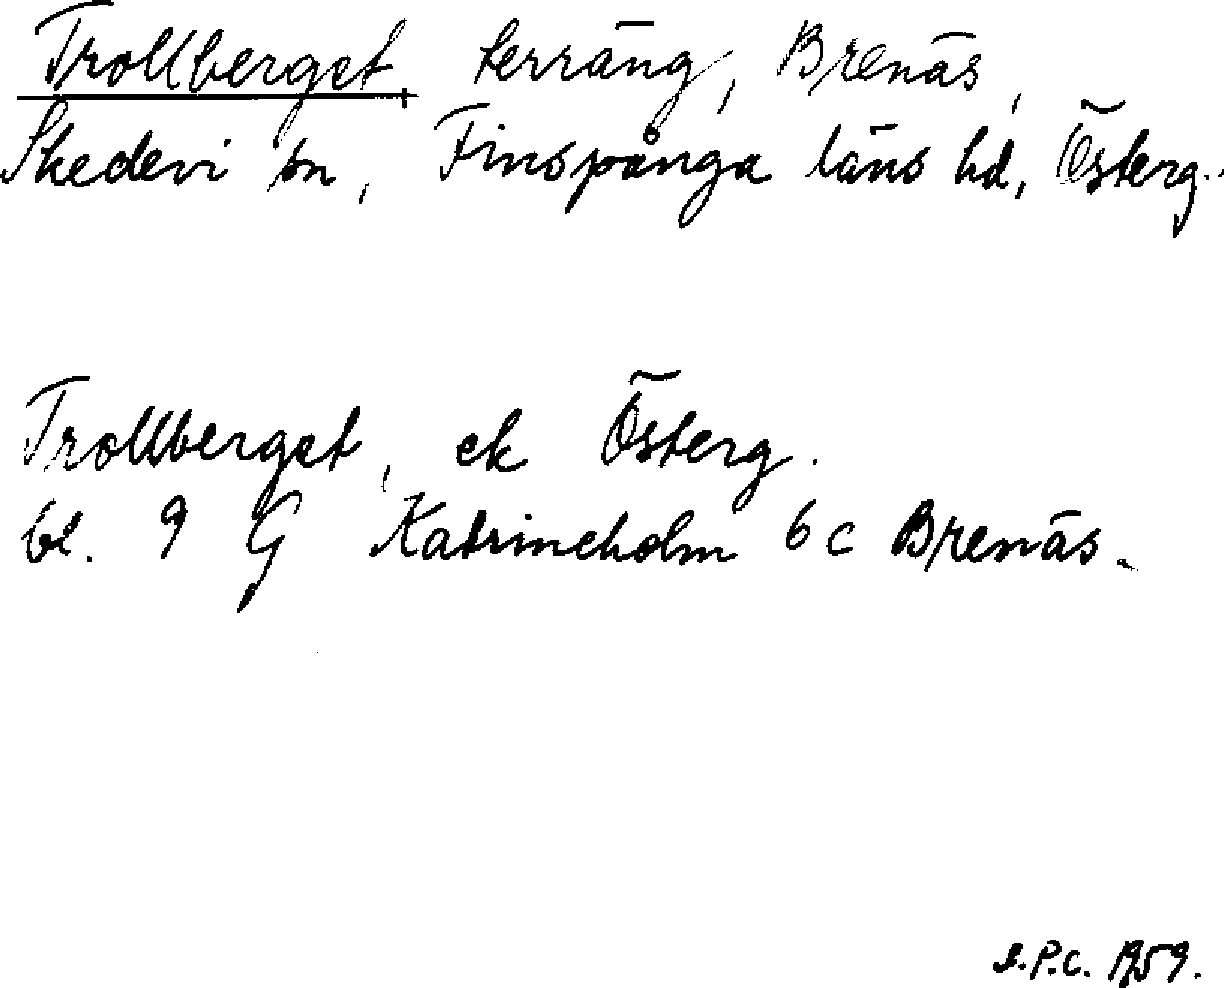 Trollberget terräng, Brenäs,
Skedevi sn, Finspånga läns hd, Österg.
Trollberget, ek Österg.
bl. 9 G Katrineholm 6 c Brenäs.
S.P.C. 1959.